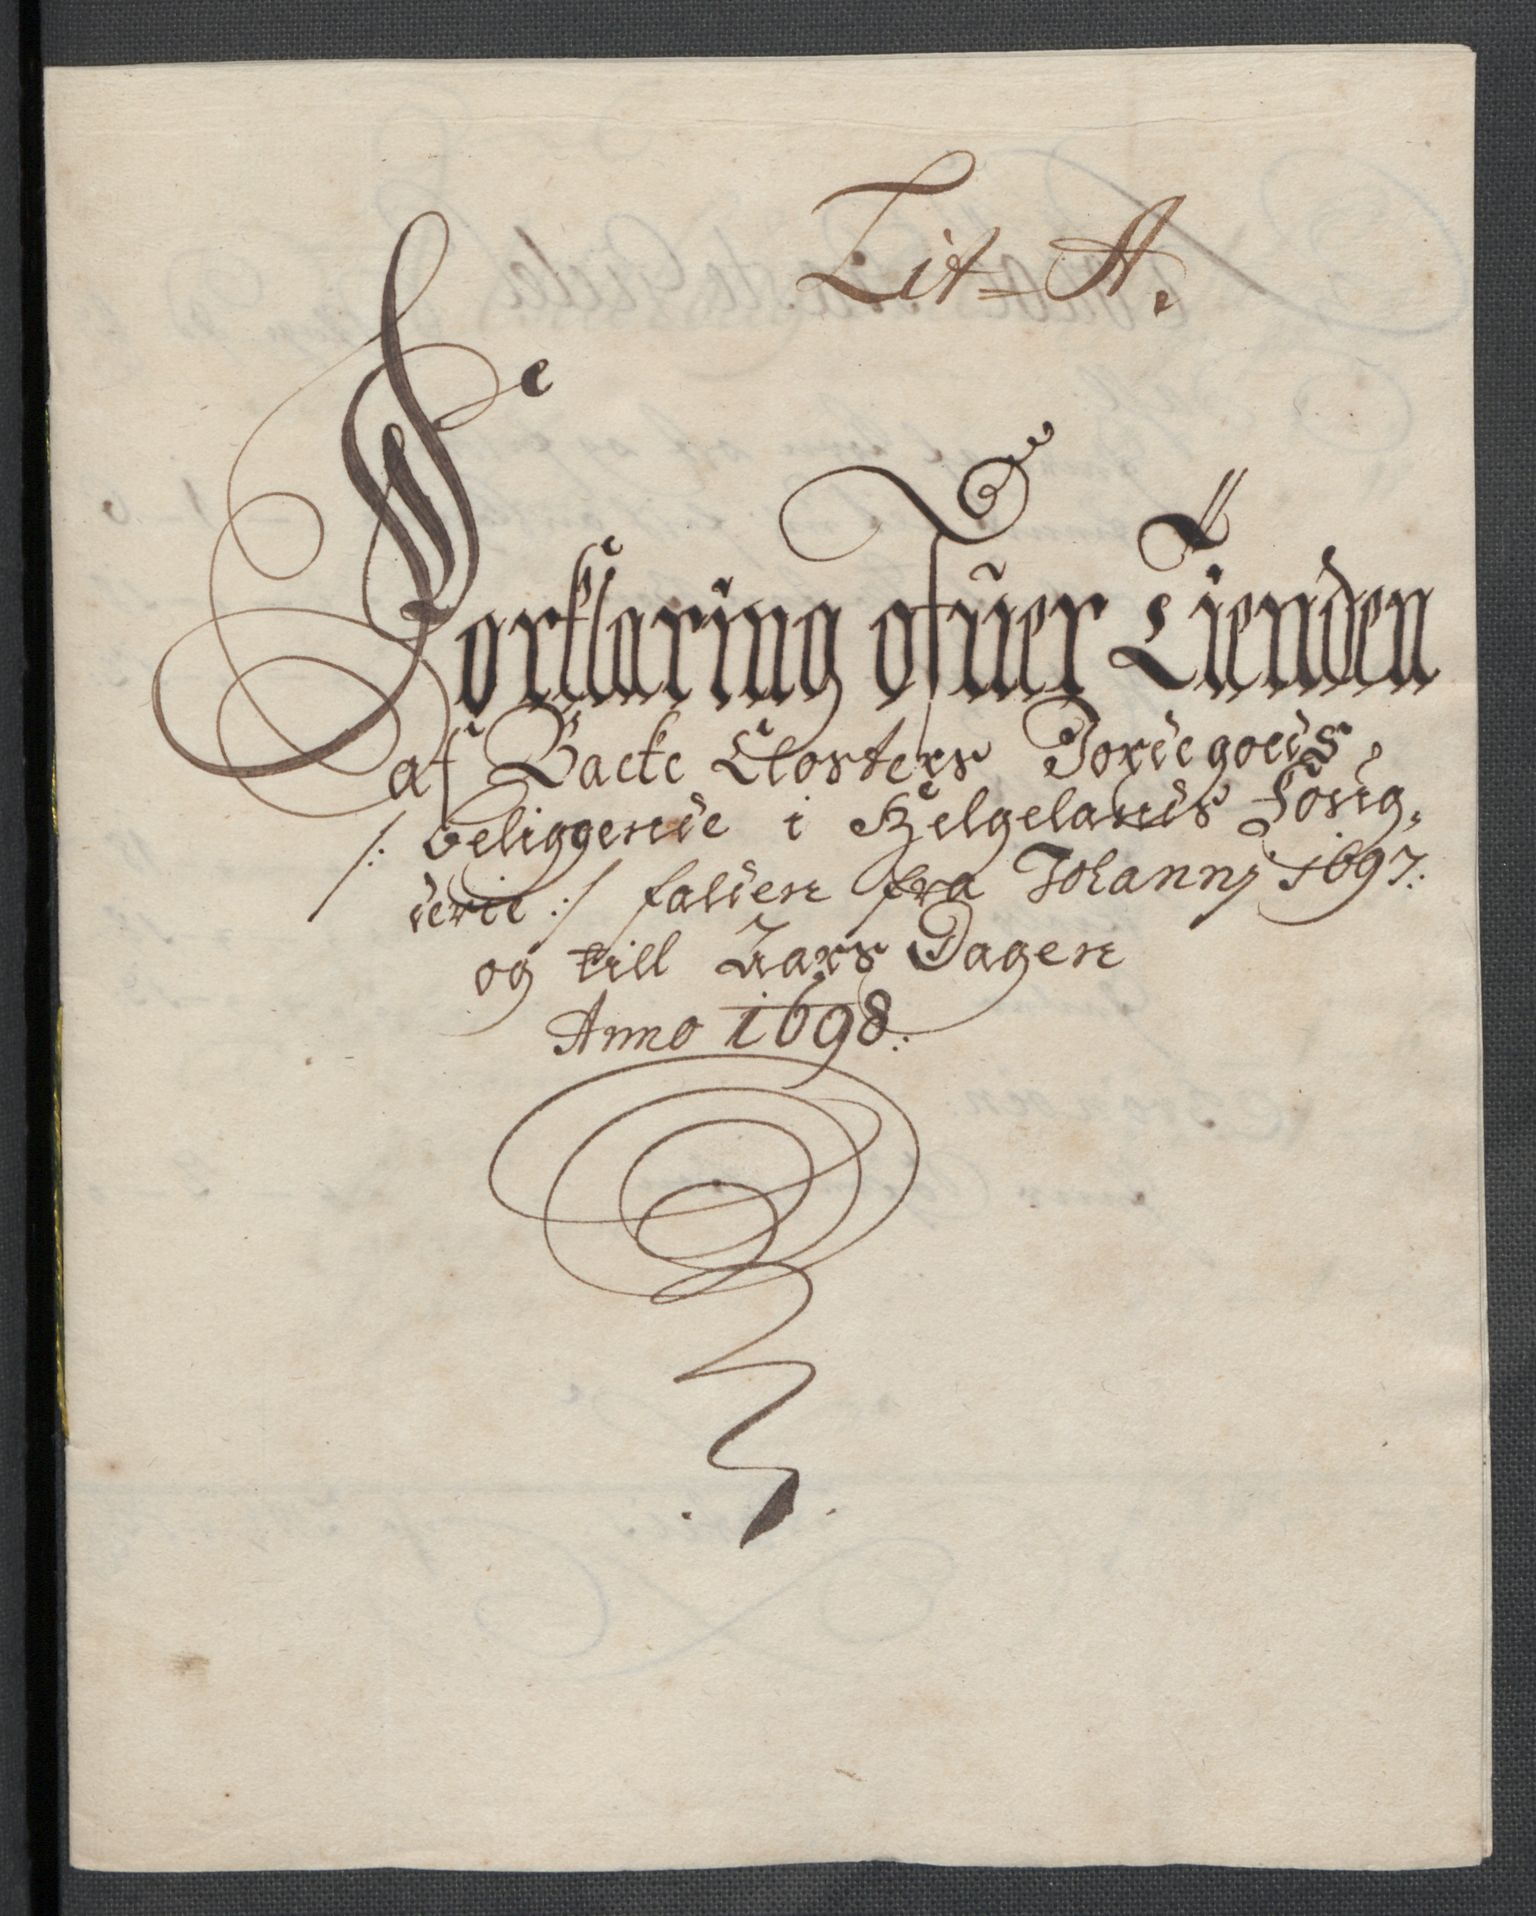 Lit= A.
Forklaring ofuer Tienden
af Backe Closters Jordegods,
/: beliggende i Helgelands Fogg,
derie :/ falden fra Johannj 1697:
og till Aars Dagen
Anno 1698: